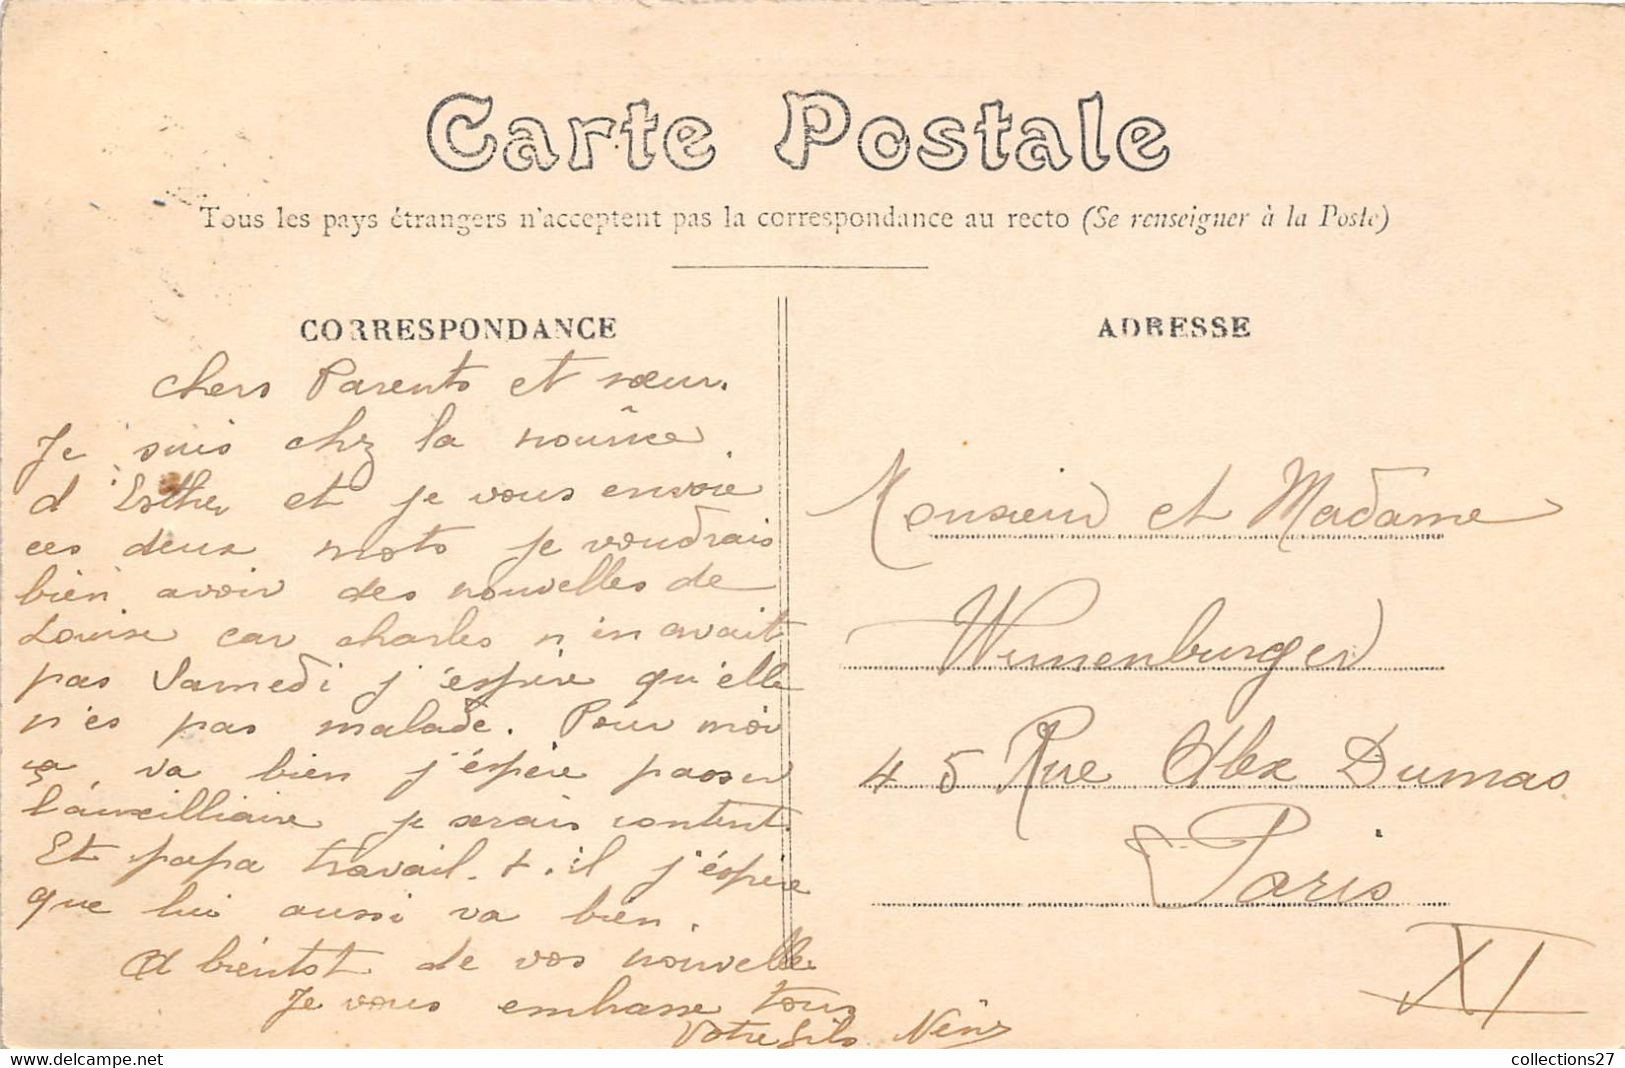 Carte Postale
Tous les pays étrangers n'acceptent pas la correspondance au recto (Se renseigner à la Poste)
CORRESPONDANCE
chers Parents et sœur.
Je suis chz la nourice
d'Esther et je vous envoie
ces deux mots je voudrais
bien avoir des nouvelles de
Louise car charles n'en avait
pas Samedi j'espère qu'elle
n'es pas malade. Pour moi
ça va bien j'éspère passer
l'auxilliaire je serais content.
Et papa travail.t.il j'éspère
que lui aussi va bien.
A bientot de vos nouvelle
Je vous embrasse tous
Votre fils
ADRESSE
Monsieur et Madame
Wunenburger
45 Rue Alex Dumas
Paris
XI
collections27